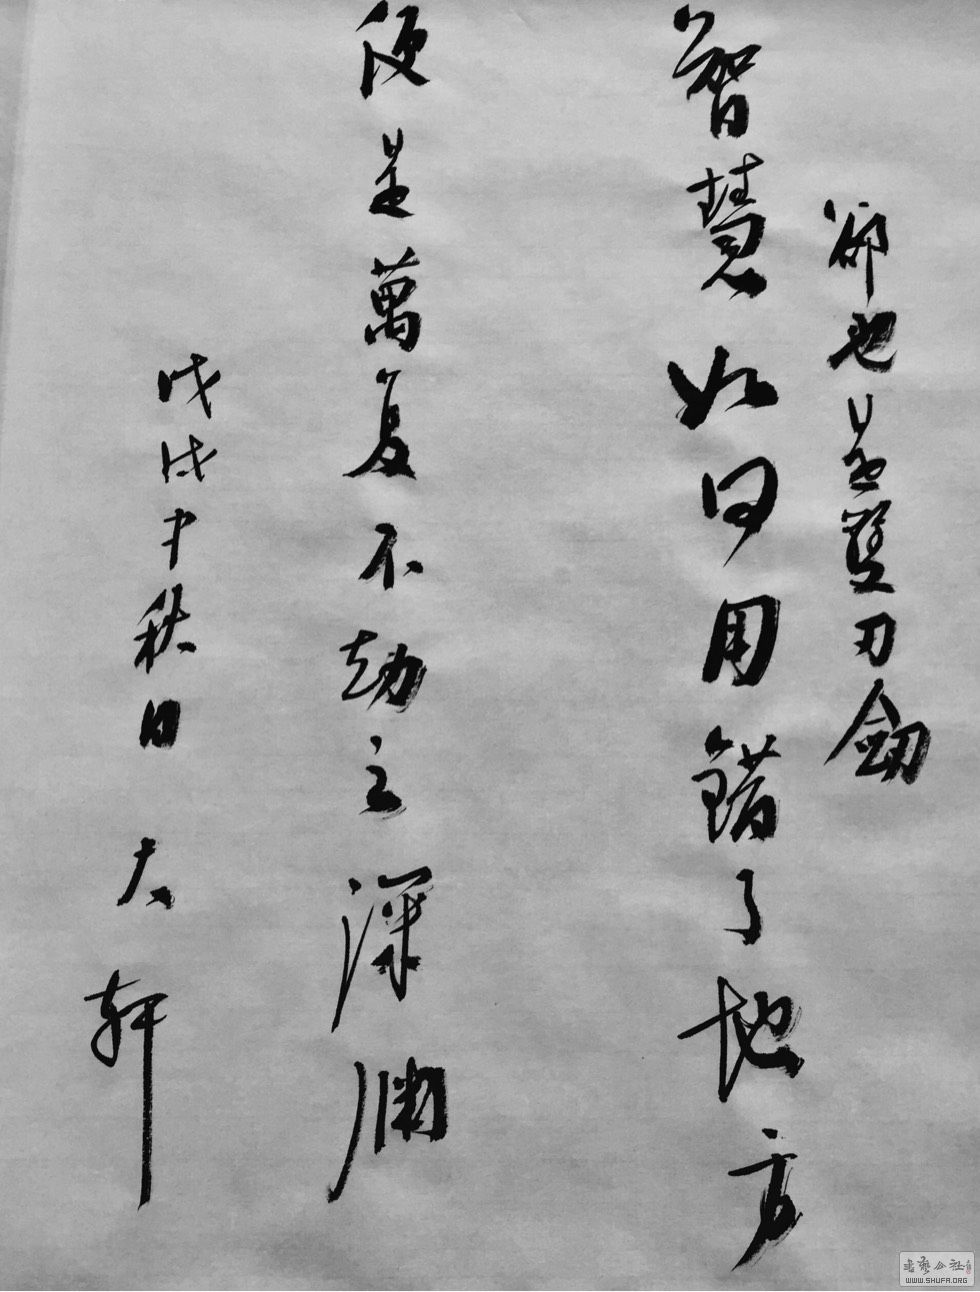 卻也是雙刃劍
智慧如同用錯了地方
便是萬复不劫之深淵
戊戌中秋日 大軒
书艺公社
WWW.SHUFA.ORG